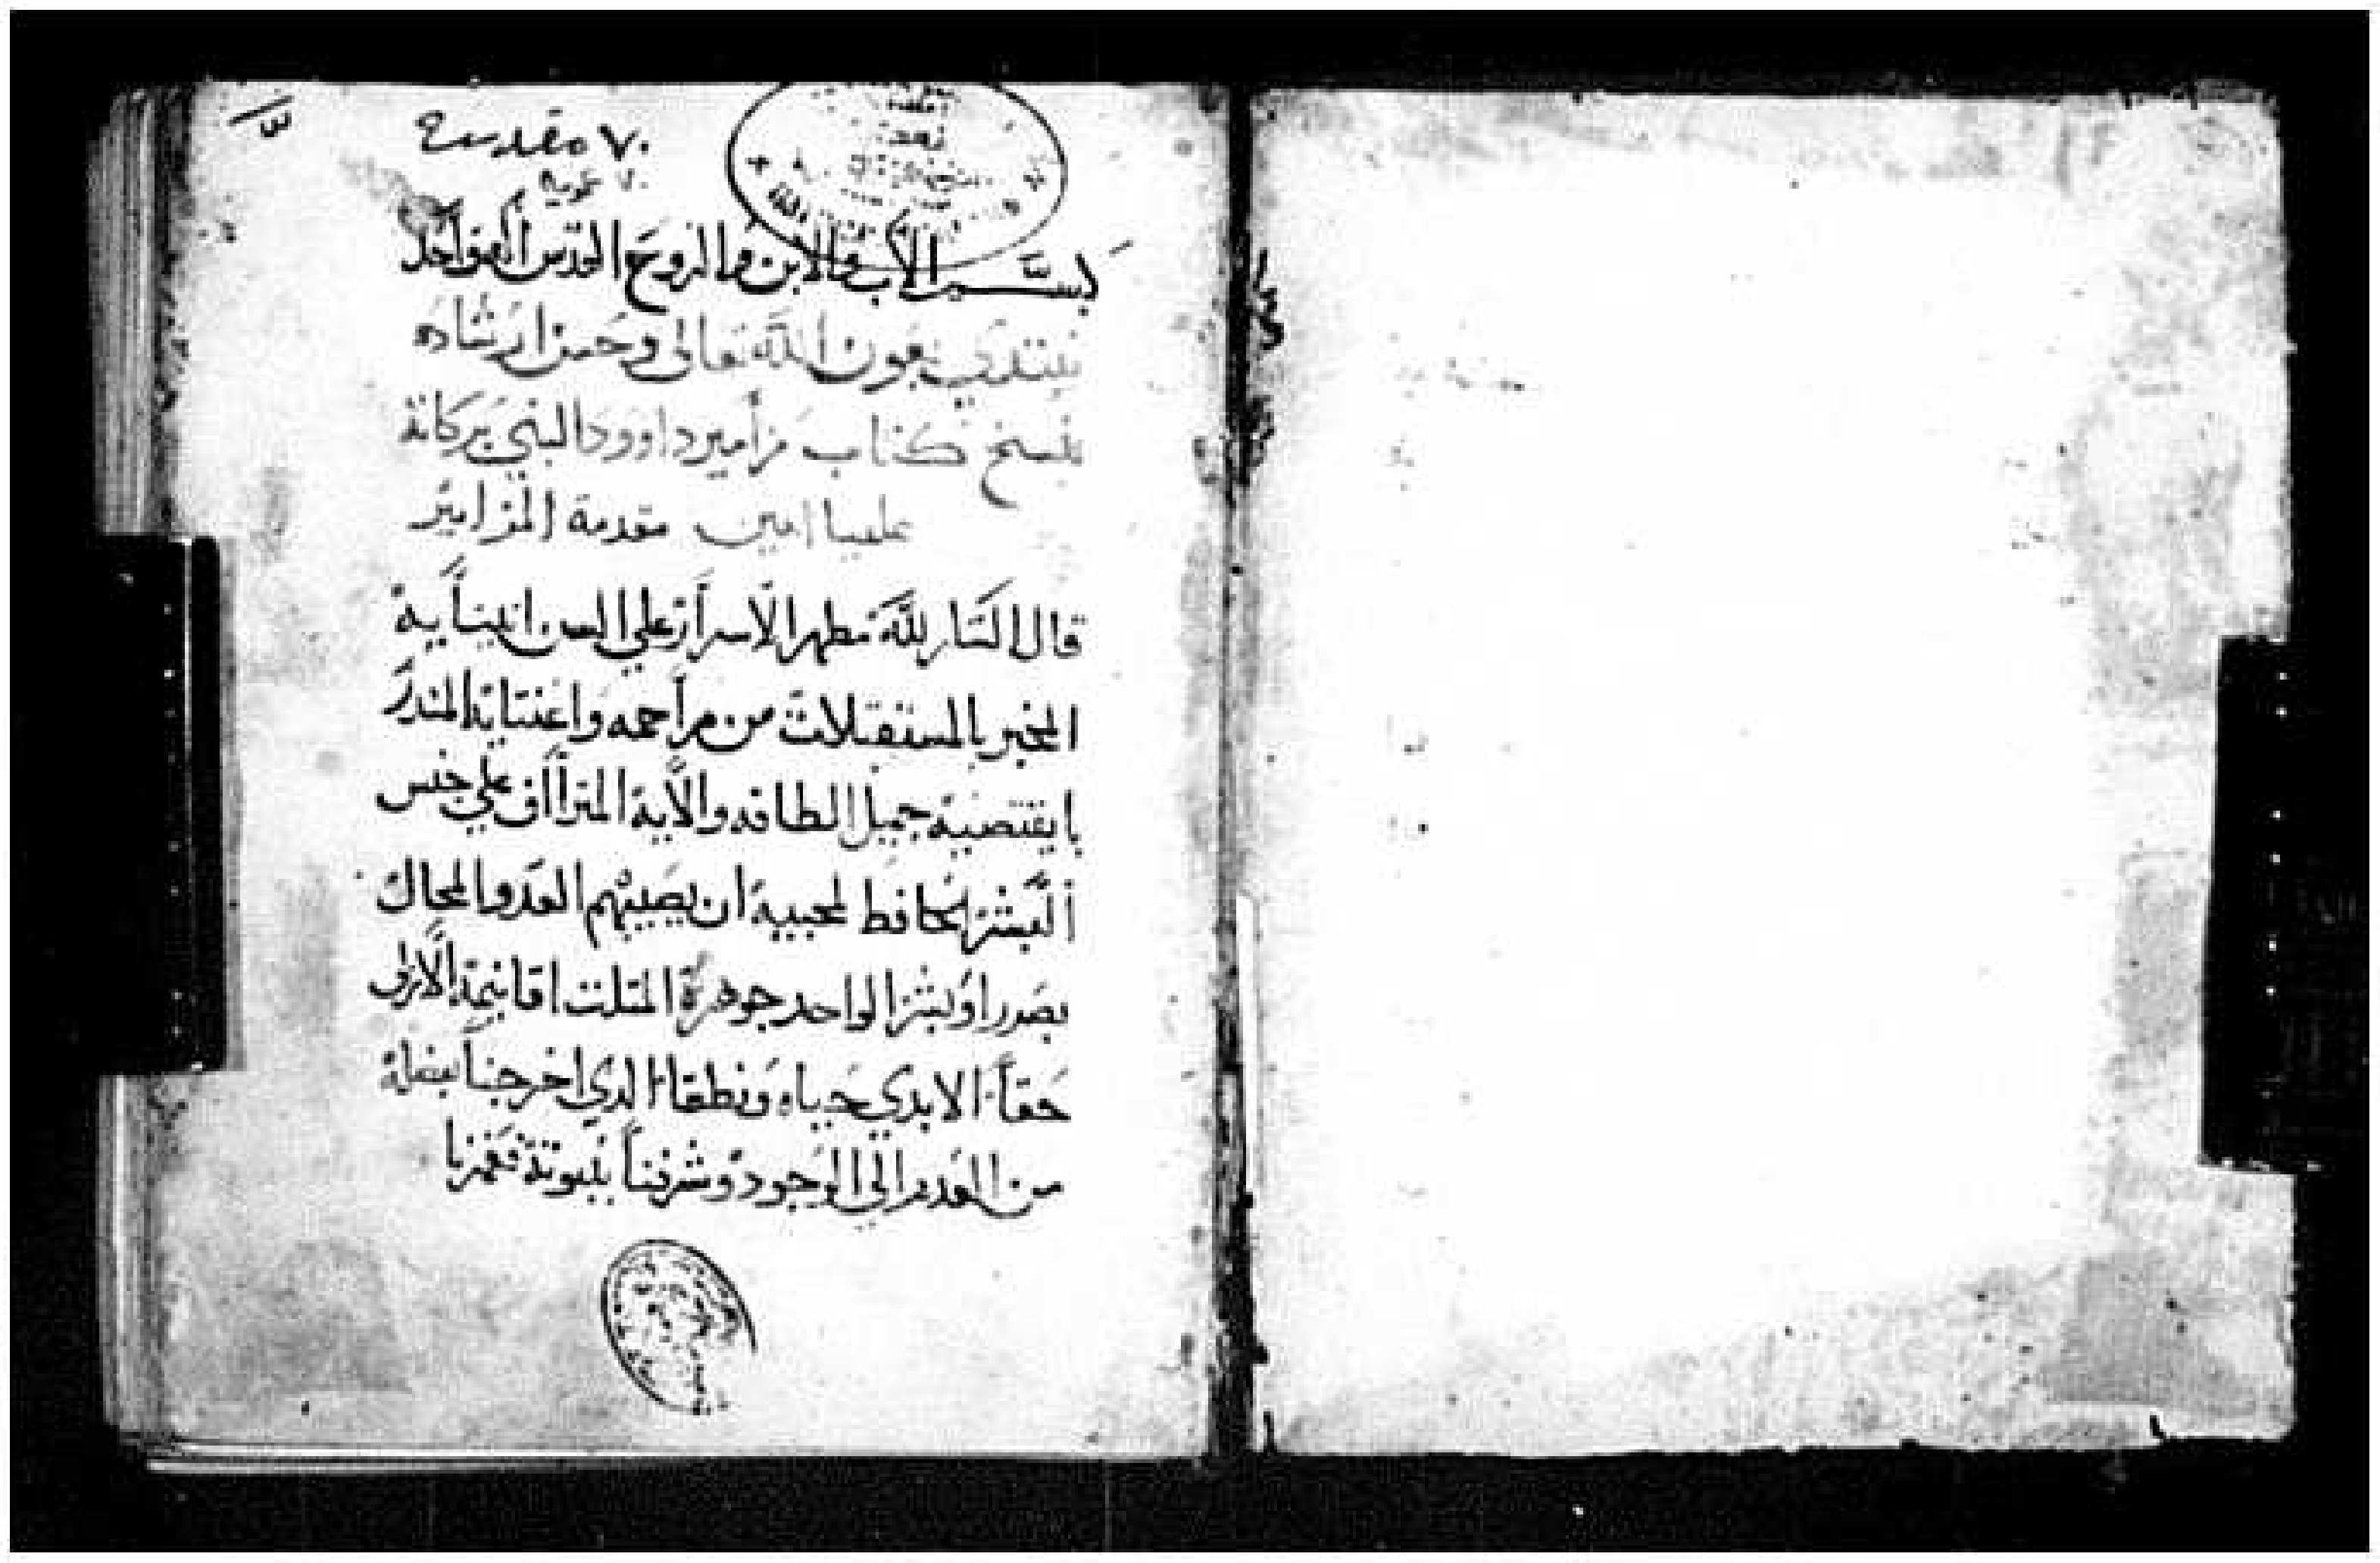 ٧٠ مقدسة
بسم الاب والابن والروح القدس اله واحد
نبتدي بعون الله تعالى وحسن ارشاده
بنسخ كتاب مزامير داوود النبي بركاته
علينا امين مقدمة المزامير
قال الشار لله مظهر الاسرار علي السن انبيايه
المخبر بالمستقبلات من مراحمه واعتنايه المندر
با يقتضيه جميل الطافه والايه المتراف علي جنس
البشر الحافظ لمحبيه ان يصيبهم العدو المحال
بصدر اوبشر الواحد جوهره المتلت اقانيمه الازلى
حقاً الابدي حياه ونطقا الدي اخرجنا بفضله
من العدم الي الوجود وشرفنا ببنوته فغمرنا